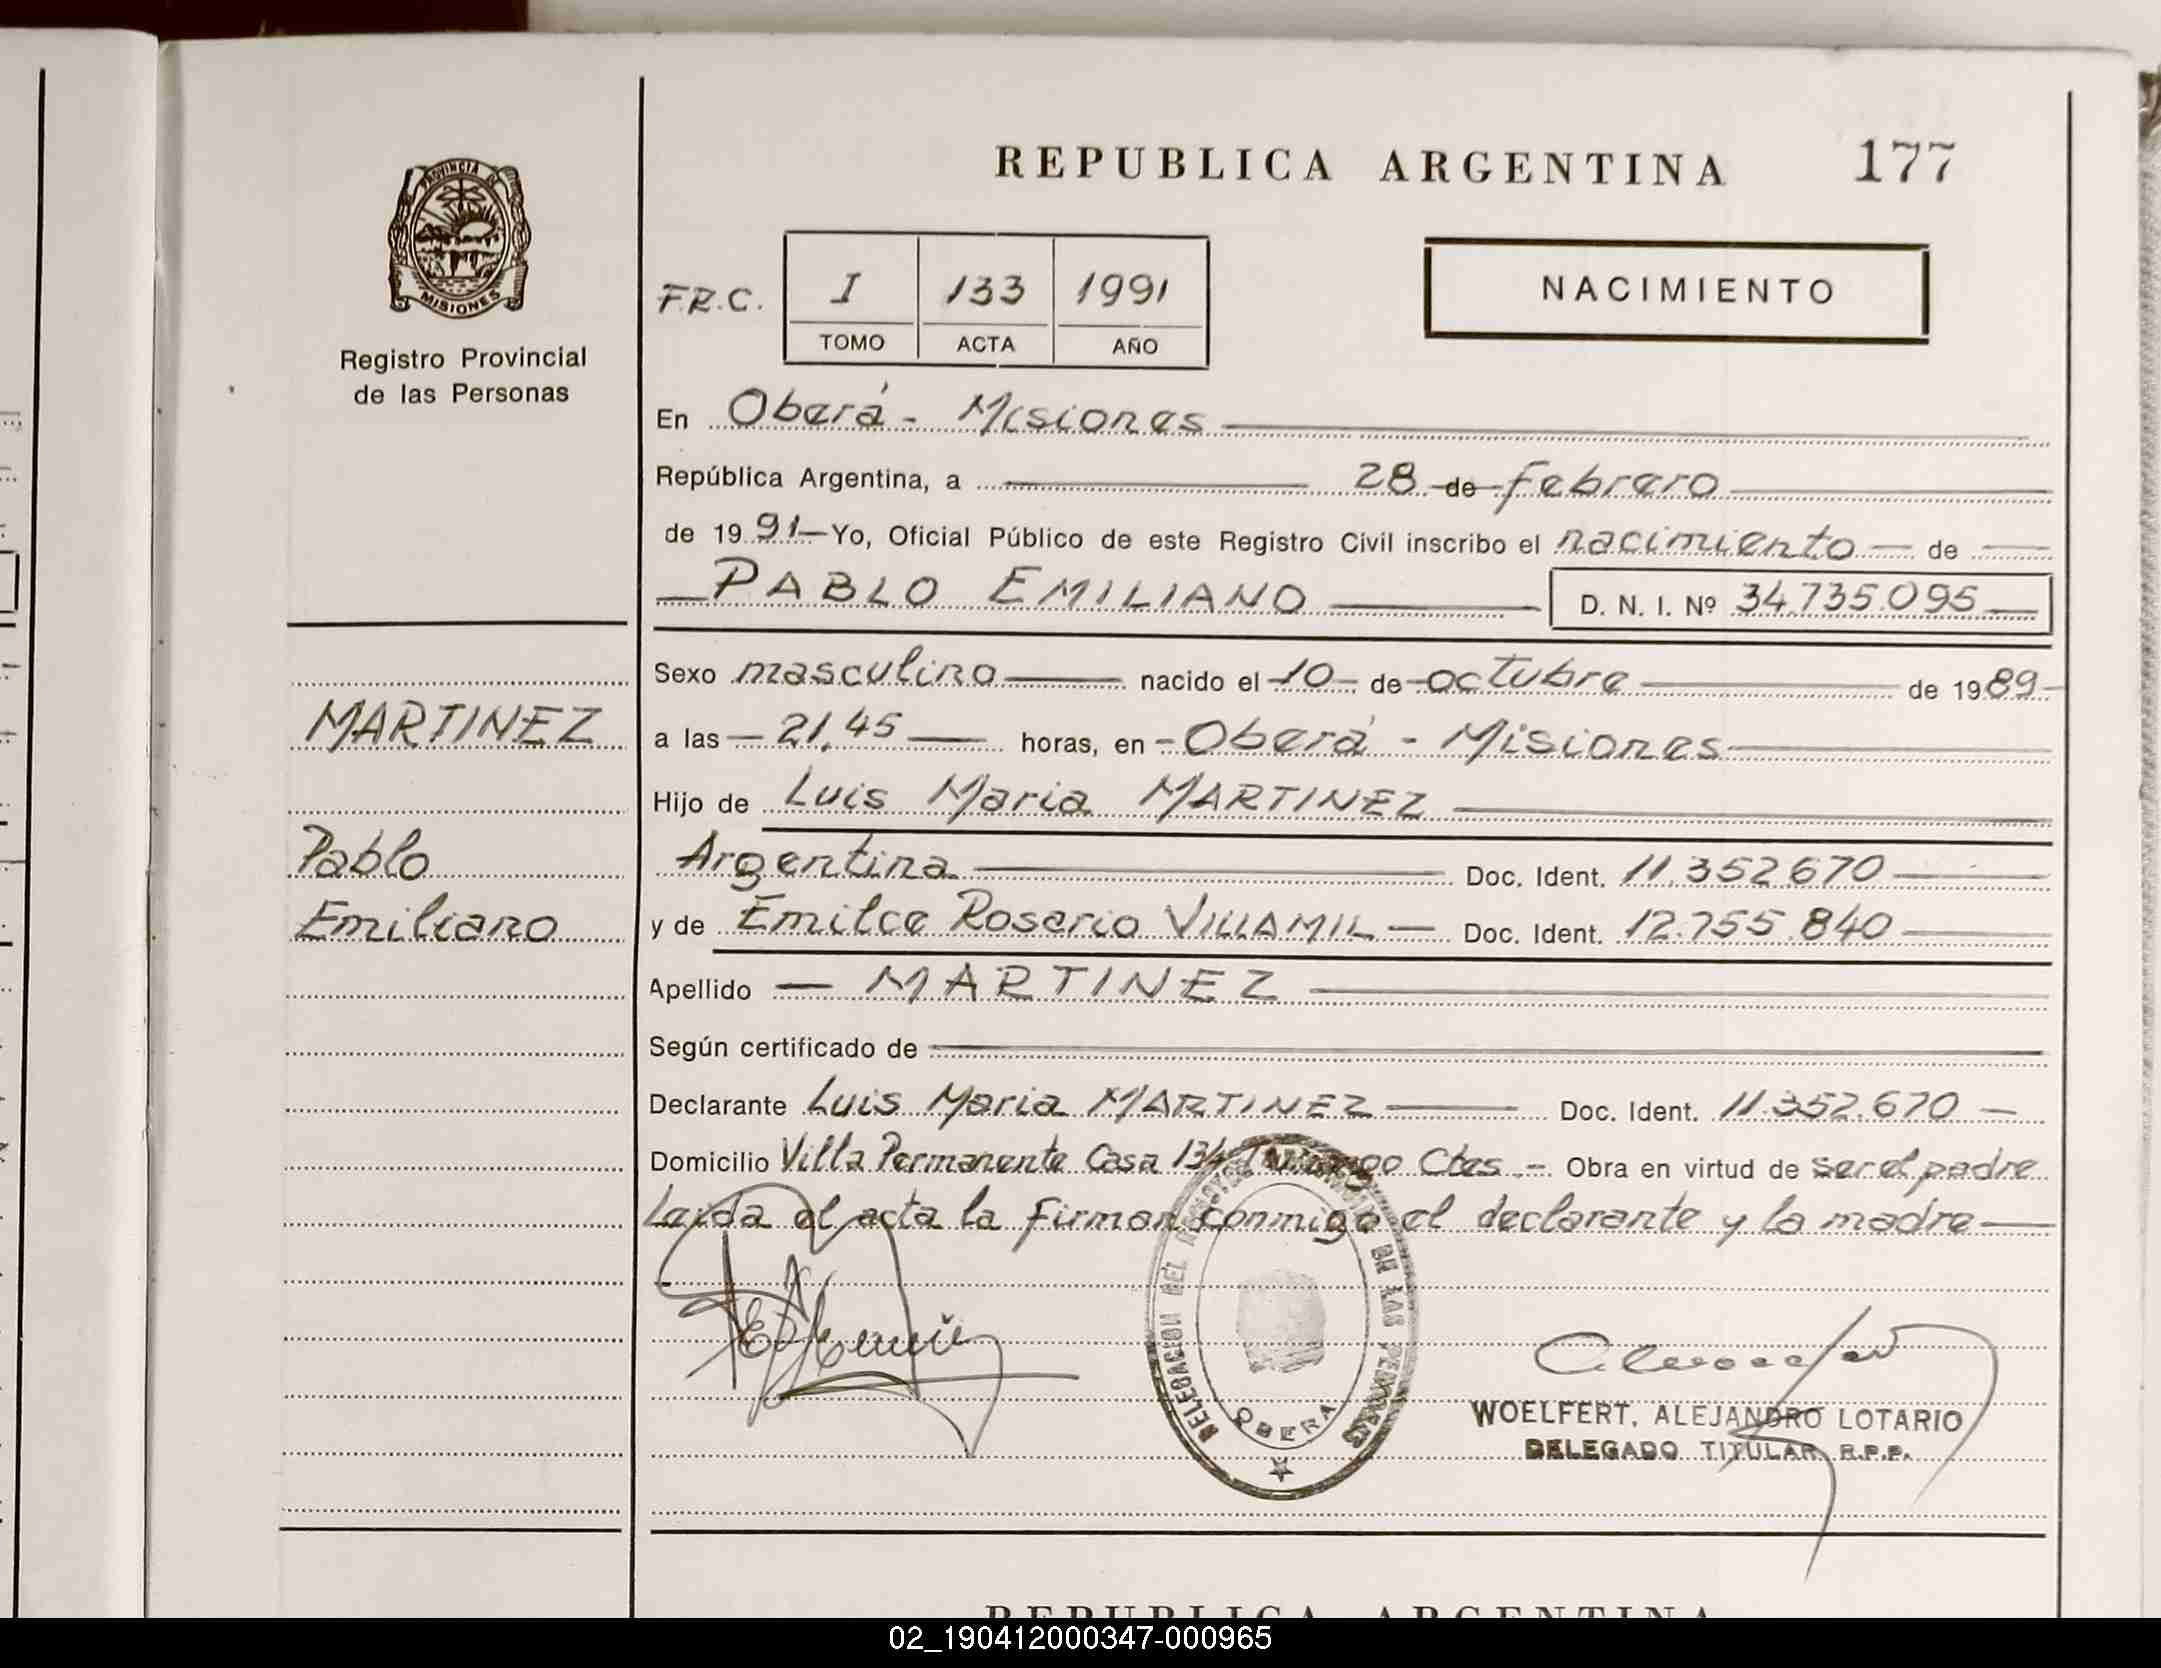 REPUBLICA ARGENTINA 177
PROVINCIA DE
MISIONES
Registro Provincial
de las Personas
NACIMIENTO
F.R.C. I 133 1991
TOMO ACTA AÑO
En Oberá - Misiones
República Argentina, a 28 de febrero
de 1991 Yo, Oficial Público de este Registro Civil inscribo el nacimiento de
PABLO EMILIANO D. N. I. Nº 34.735.095
Sexo masculino nacido el 10 de octubre de 1989
MARTINEZ
a las 21,45 horas, en Oberá - Misiones
Hijo de Luis Maria MARTINEZ
Pablo
Argentina Doc. Ident. 11.352.670
Emiliano
y de Emilce Rosario VILLAMIL Doc. Ident. 12.755.840
Apellido MARTINEZ
Según certificado de
Declarante Luis Maria MARTINEZ Doc. Ident. 11.352.670
Domicilio Villa Permanente Casa 134 Ctes. - Obra en virtud de ser el padre
Leída el acta la firman conmigo el declarante y la madre
DELEGACION DEL DE LAS PERSONAS
OBERA
WOELFERT, ALEJANDRO LOTARIO
DELEGADO TITULAR R.P.P.
REPUBLICA ARGENTINA
02_190412000347-000965